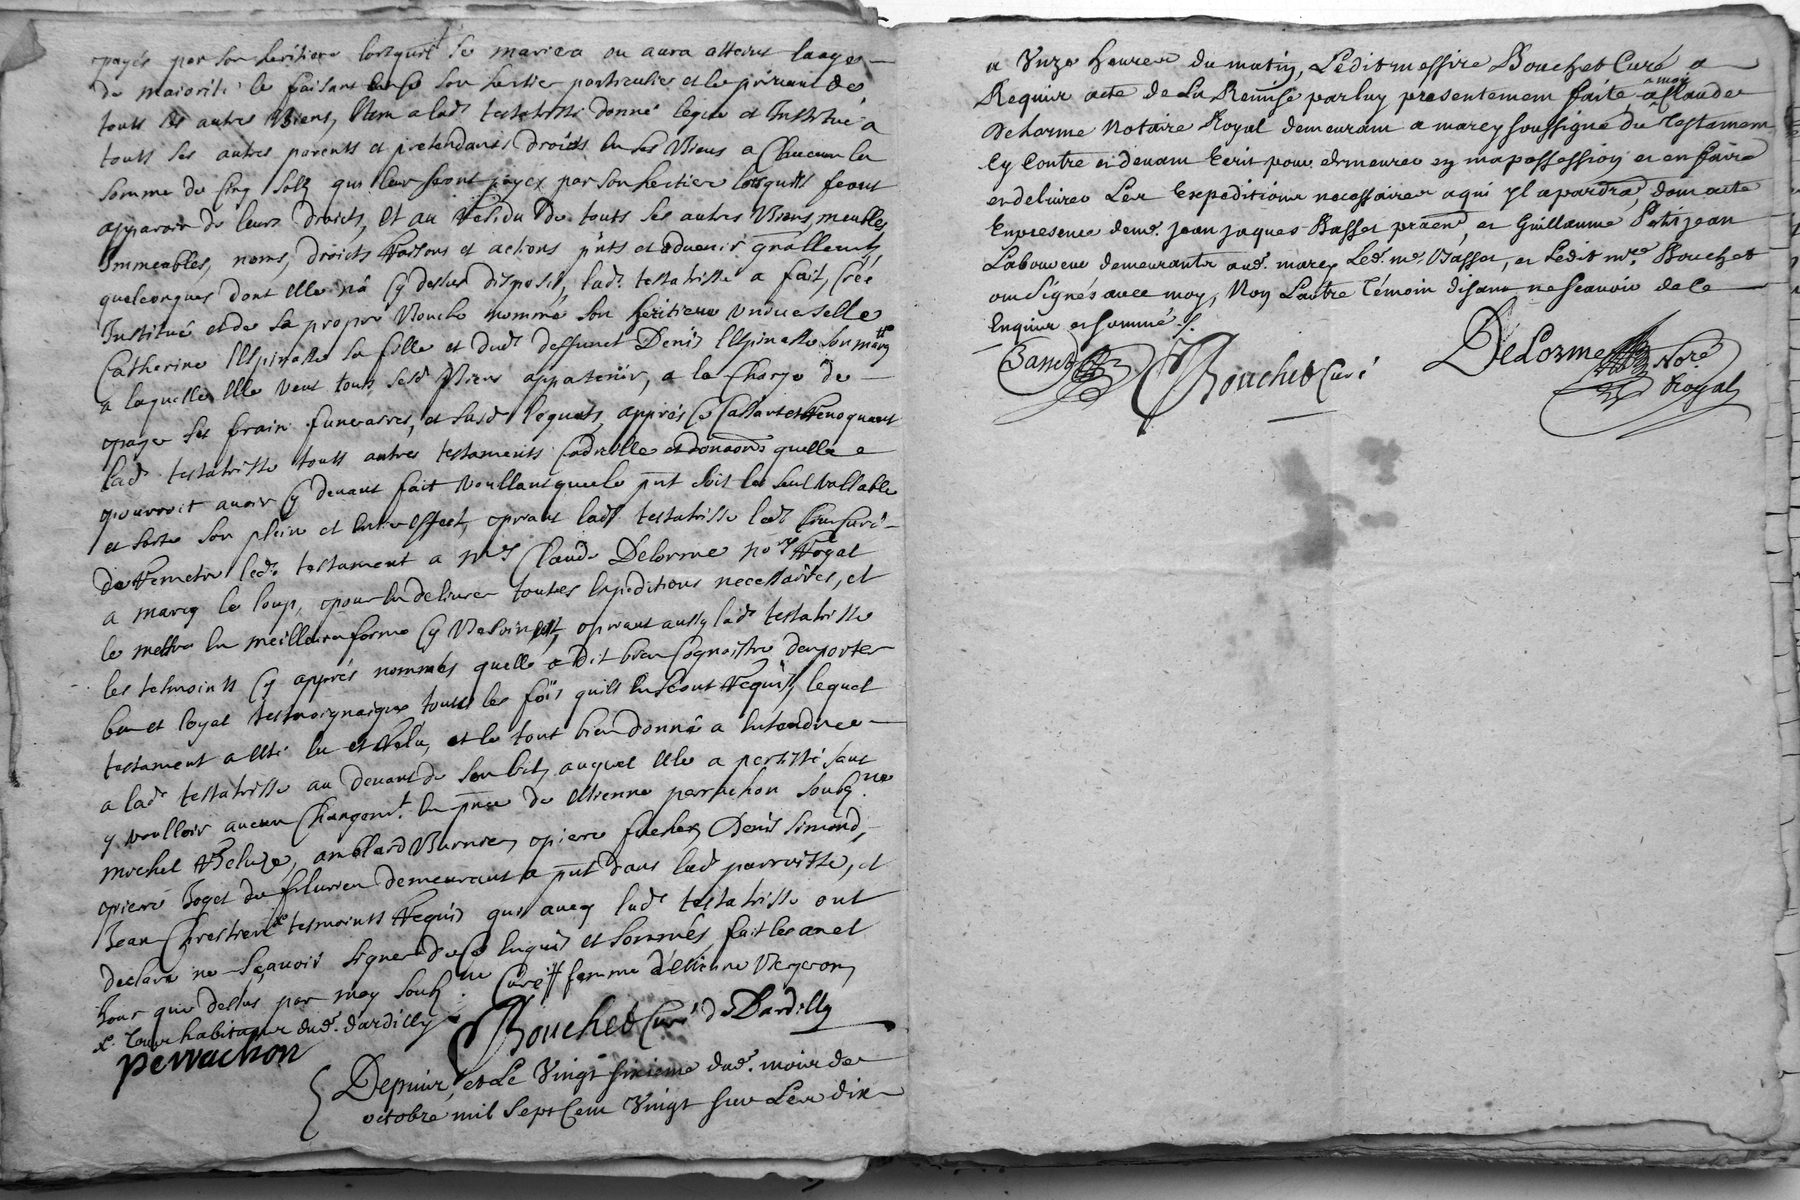 payés par son heritiere lorsquil se mariera ou aura atteint laage
de majorité le faisant en ce son heritier particulier et le privant de
touts ses autres Biens, Item a lad. testatrisse donné legué et Institué a
touts ses autres parents et pretendants droicts en ses Biens a Chacun la
somme de Cinq solz qui leur seront payez par son heritier lorsquils feront
apparoir de leurs droicts, Et au Residu de touts ses autres Biens, meubles,
Immeubles, noms, droicts Raisons et actions pnts et advenir gnallement
quelconques dont elle na cy dessus disposé, lad. testatrisse a fait, Créé
Institué et de sa propre Bouche nommé son heritiere universelle
Catherine lEspinasse sa fille et dud. deffunct Denis lEspinasse son mary
a laquelle elle veut touts sesd. Biens appartenir, a la Charge de
payer ses frais funeraires, et susd. legats, appres Ce Cassant et Revoquant
lad. testatrisse touts autres testaments Codicille et donaons quelle
pourroit avoir cy devant fait voullant que le pnt soit le seul vallable
et sorte son plein et entier effect, priant lad. testatrisse led. sieur Curé
de Remettre led. testament a Mre Claude Delorme nore Royal
a marcy le loup, pour en delivrer touttes Expeditions necessaires, et
le mettre en meilleure forme sy Besoin est, priant aussy lad. testatrisse
les tesmoints cy appres nommés quelle a dit bien Cognoistre den porter
bon et loyal tesmoignaige touts les fois quils en seront Requis, lequel
testament a esté lu et Relu, et le tout bien donné a Entendre
a lad. testatrisse au devant de son lict, auquel elle a persisté sans
y voulloir aucun Changemt. en pnce de Estienne perrachon soubzne
michel Beluze, amblard Burnier, pierre fuchez, Denis Simond,
pierre Boget du flurieu demeurant a pnt dans lad. parroisse, et
Jean Chrestien x tesmoints Requis qui avec lad. testatrisse ont
declaré ne sçavoir signer de ce Enquis et sommés, fait les an et
Jour que dessus par moy soubz.ne Curé // femme dEstienne Vergeron
x. Tous habitants dud. dardilly
perrachon Bouchet Curé de Dardilly
Depuis, et Le Vingt sixieme dud. mois de
octobre mil sept Cent Vingt sur Les dix
a Unze heures du matin, Ledit messire Bouchet Curé a
Requis acte de La Remise par luy presentement faite, a moy Claude
Delorme Notaire Royal demeurant a marcy soussigné du Testament
Cy Contre et devant Ecrit pour demeurer en ma possession et en faire
et delivrer Les Expeditions necessaires a qui yl apartdra, dont acte
En presence de me. Jean Jaques Basset praen, et Guillaume Petitjean
Laboureur demeurants aud. marcy Led. me. Basset, et Ledit mre. Bouchet
ont signés avec moy, Non Lautre Témoin disant ne scavoir de ce
Enquis et sommé ./.
Basset Bouchet Curé DeLorme Nore
Royal